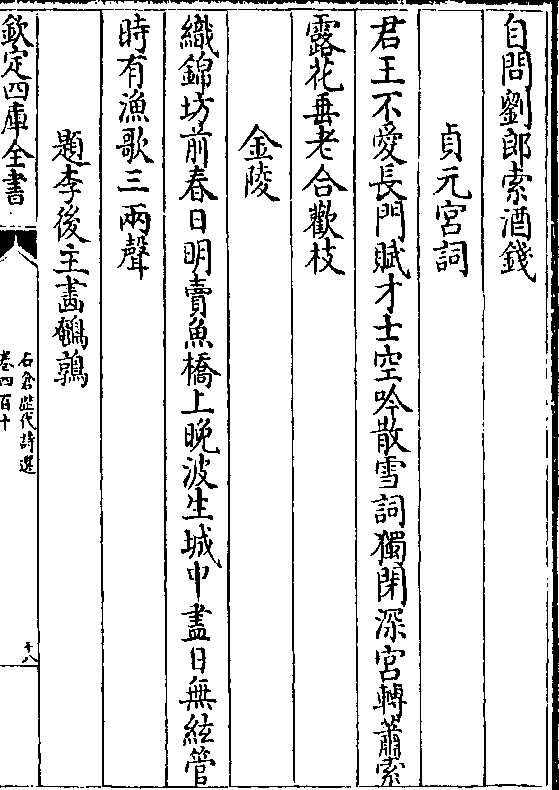 自問劉郎索酒錢
貞元宮詞
君王不愛長門賦才士空吟散雪詞獨閉深宮轉蕭索
露花垂老合歡枝
金陵
織錦坊前春日明賣魚橋上晚波生城中盡日無絃管
時有漁歌三兩聲
題李後主畵鵪鶉
欽定四庫全書
石倉歷代詩選
卷四百十
十八